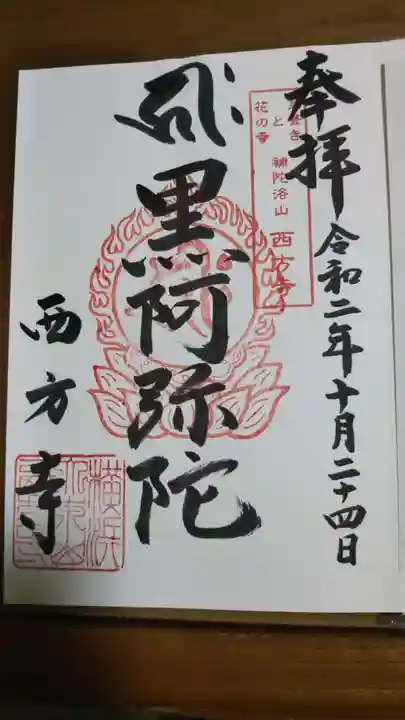 奉拝
令和二年十月二十四日
花の寺
と
補陀洛山
西方寺
黒阿弥陀
西方寺
横浜